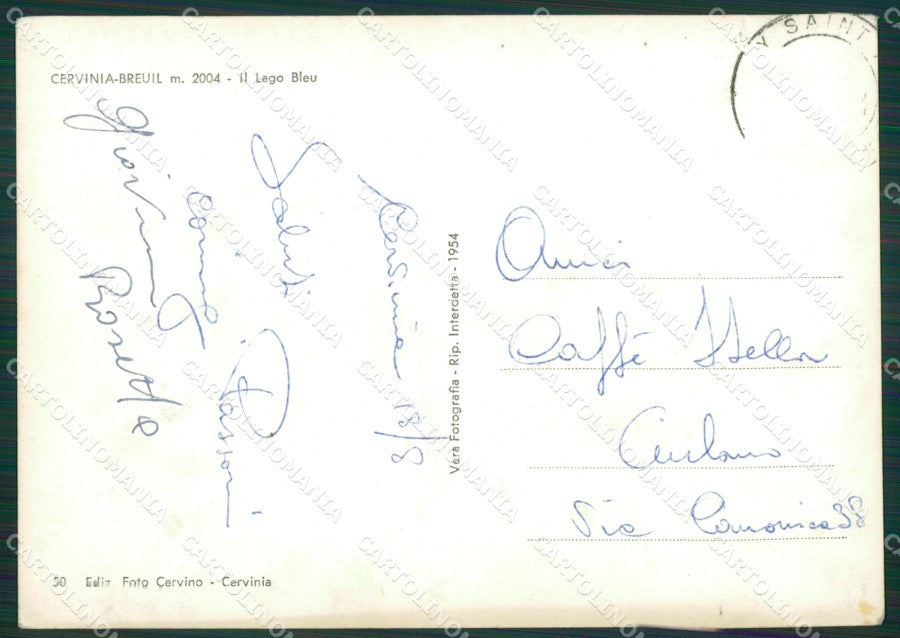 CERVINIA-BREUIL m. 2004 - Il Lago Bleu
Cervinia 18/8
Saluti
Giovanna
Rosetta
Vera Fotografia - Rip. Interdetta - 1954
Y SAINT
Amici
Caffè Stella
Via Canonica 38
50 Ediz. Foto Cervino - Cervinia
CARTOLINOMANIA